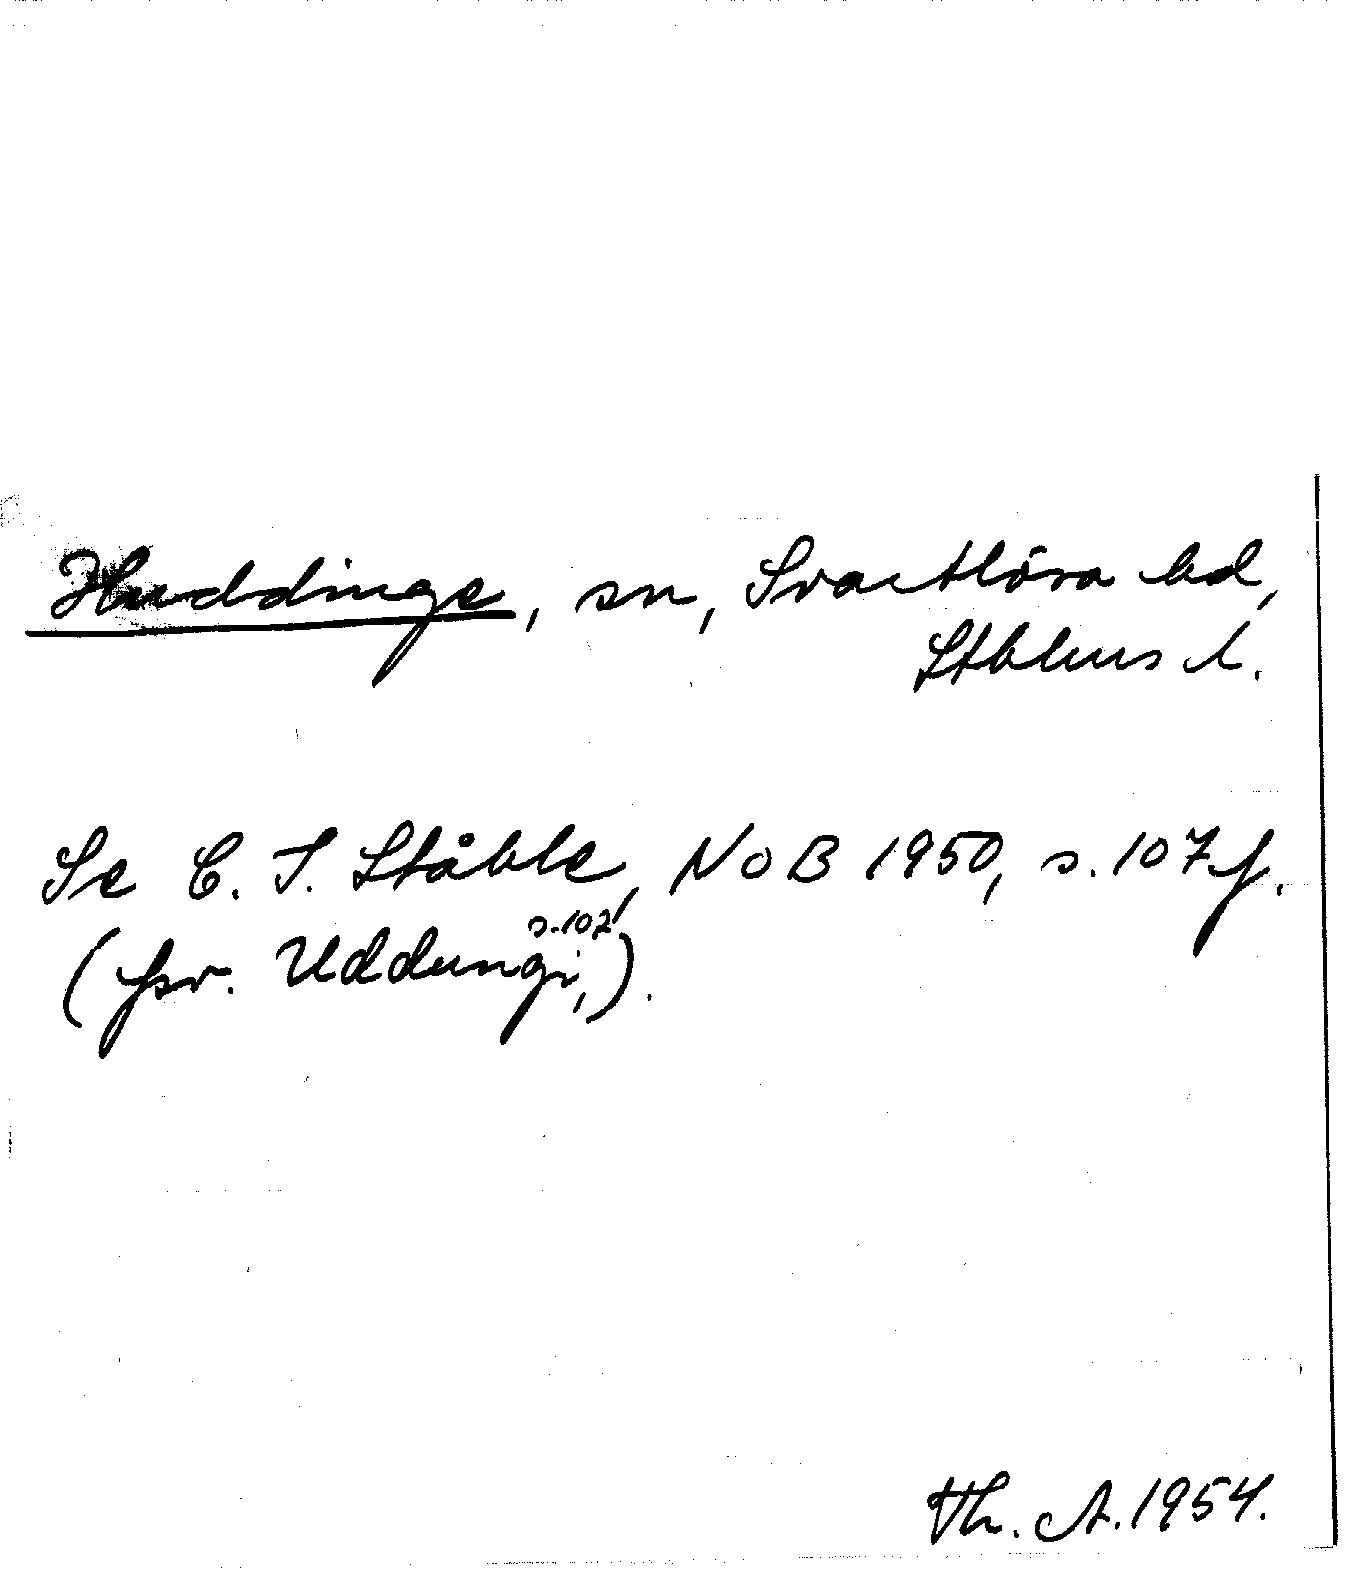 Huddinge, sn, Svartlösa hd,
Sthlms l.
Se C. I. Ståhle, NoB 1950, s. 107 f.
(fsv. Uddungi, s. 102).
Th. A. 1954.